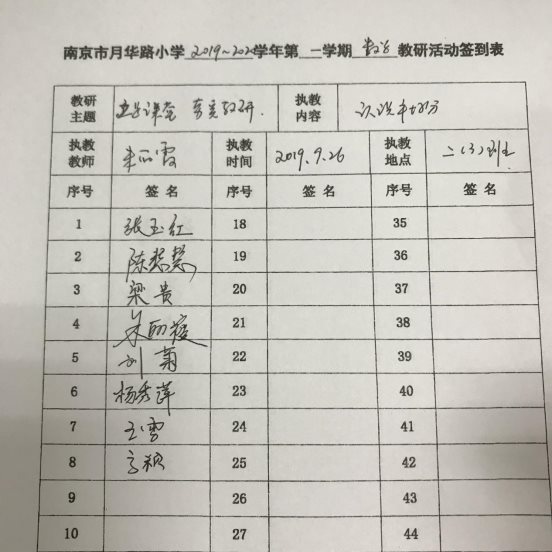 南京市月华路小学 2019～2020学年第 一 学期 数学 教研活动签到表
教研主题 课堂 教研. 执教内容 认识平均分
执教教师 朱丽霞 执教时间 2019.9.26 执教地点 二(3)班
序号 签 名 序号 签 名 序号 签 名
1 张玉红 18 35
2 陈慧慧 19 36
3 梁贵 20 37
4 朱丽霞 21 38
5 刘菊 22 39
6 杨秀萍 23 40
7 王雪 24 41
8 颖 25 42
9 26 43
10 27 44